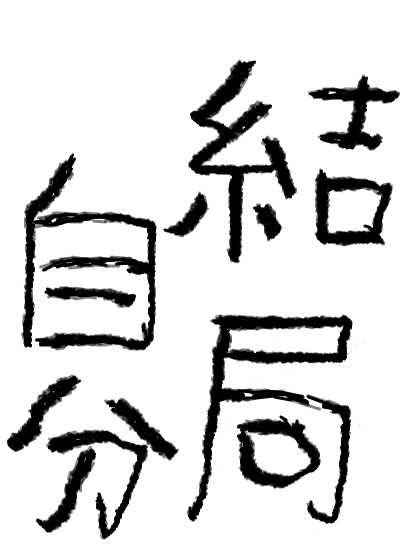 結局
自分